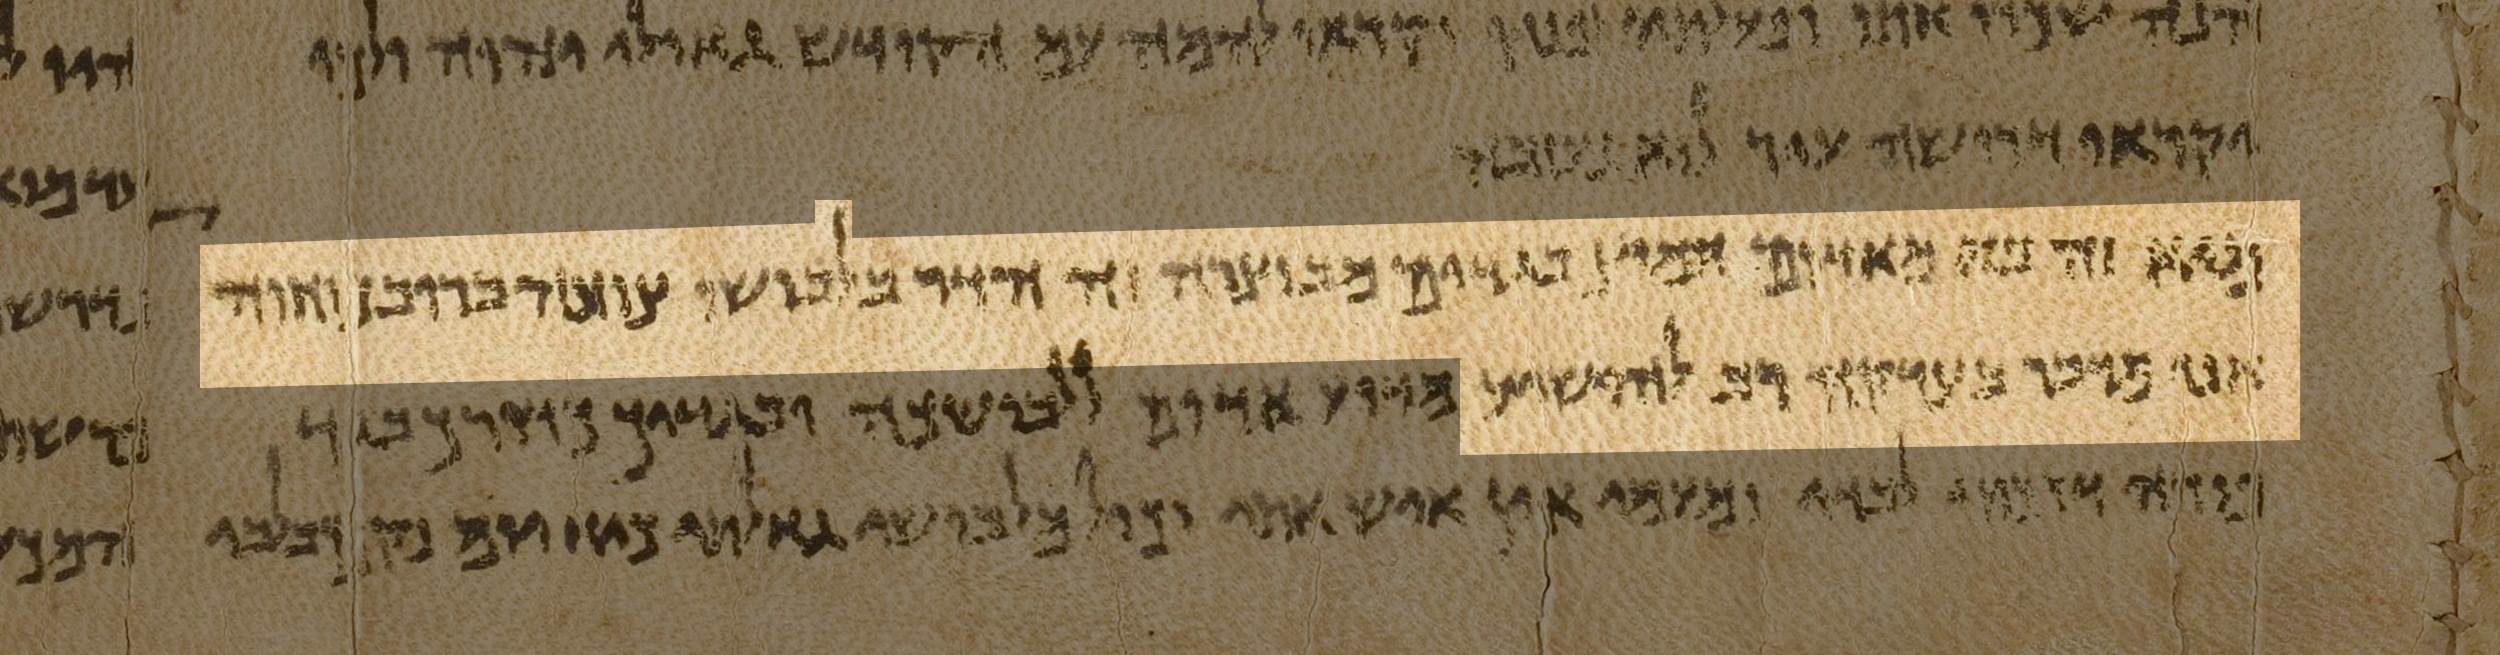 הנה שכרו אתו ופעלתו לפניו וקראו להמה עם הקודש גאולי יהוה ולך
יקראו דרושה עיר לוא נעזבה
מיא זה בא מאדום חמוץ בגדים מבוצרה זה הדור בלבושו צועה ברוב כוחו
אני מדבר בצדקה רב להושיע מדוע אדום ללבושכה ובגדיך כדורך בגת
פורה דרכתי לבדי ומעמי אין איש אתי וכול מלבושי גאלתי כיא יום נקם בלבי